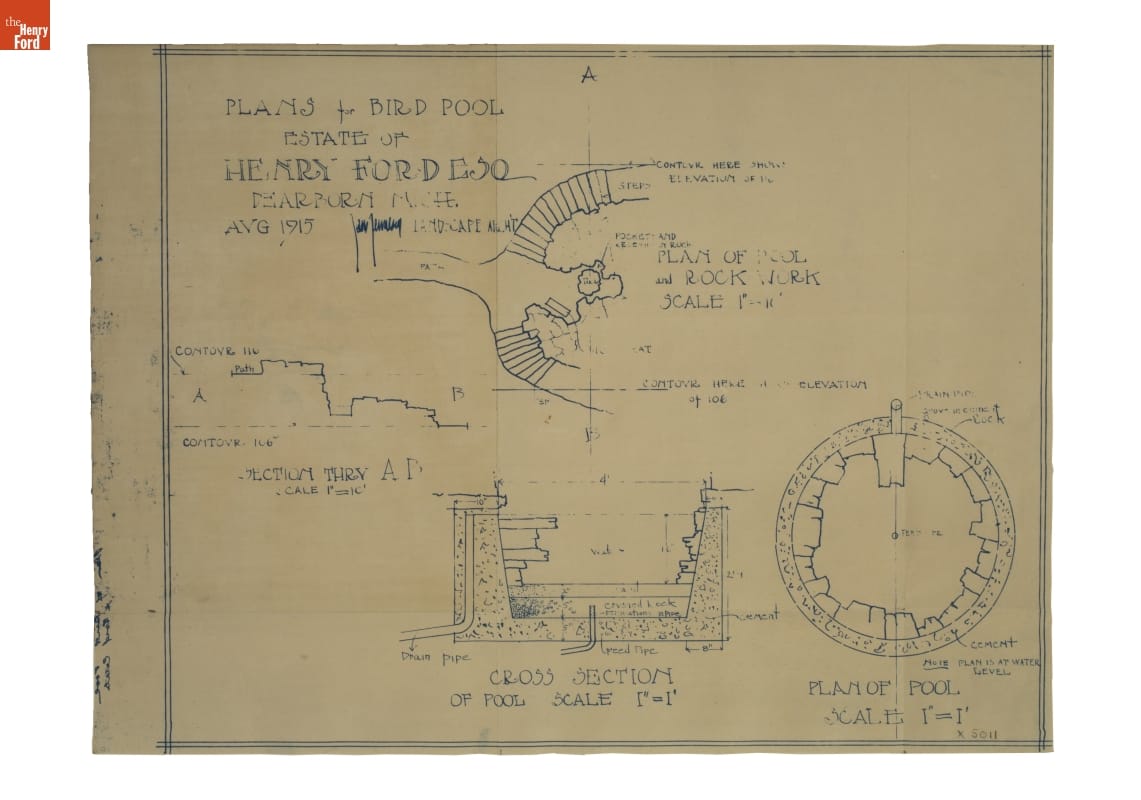 the
Henry
Ford
A
PLANS for BIRD POOL
ESTATE OF
HENRY FORD ESQ
DEARBORN MICH.
AVG 1915 LANDSCAPE
CONTOVR HERE SHOWS
ELEVATION OF
STEPS
POCKET AND
ROCK
PATH
PLAN OF POOL
and ROCK WORK
SCALE 1"=
CONTOVR 116
Path
A
B
CONTOVR HERE ELEVATION
of 106
B
CONTOVR 106
SECTION THRV A
SCALE 1"=10'
DRAIN PIPE
CEMENT
ROCK
4'
10"
crushed Rock
cement
Feed Pipe
8"
Drain pipe
CROSS SECTION
OF POOL SCALE 1"=1'
CEMENT
NOTE PLAN IS AT WATER
LEVEL
PLAN OF POOL
SCALE 1"=1'
X 5011